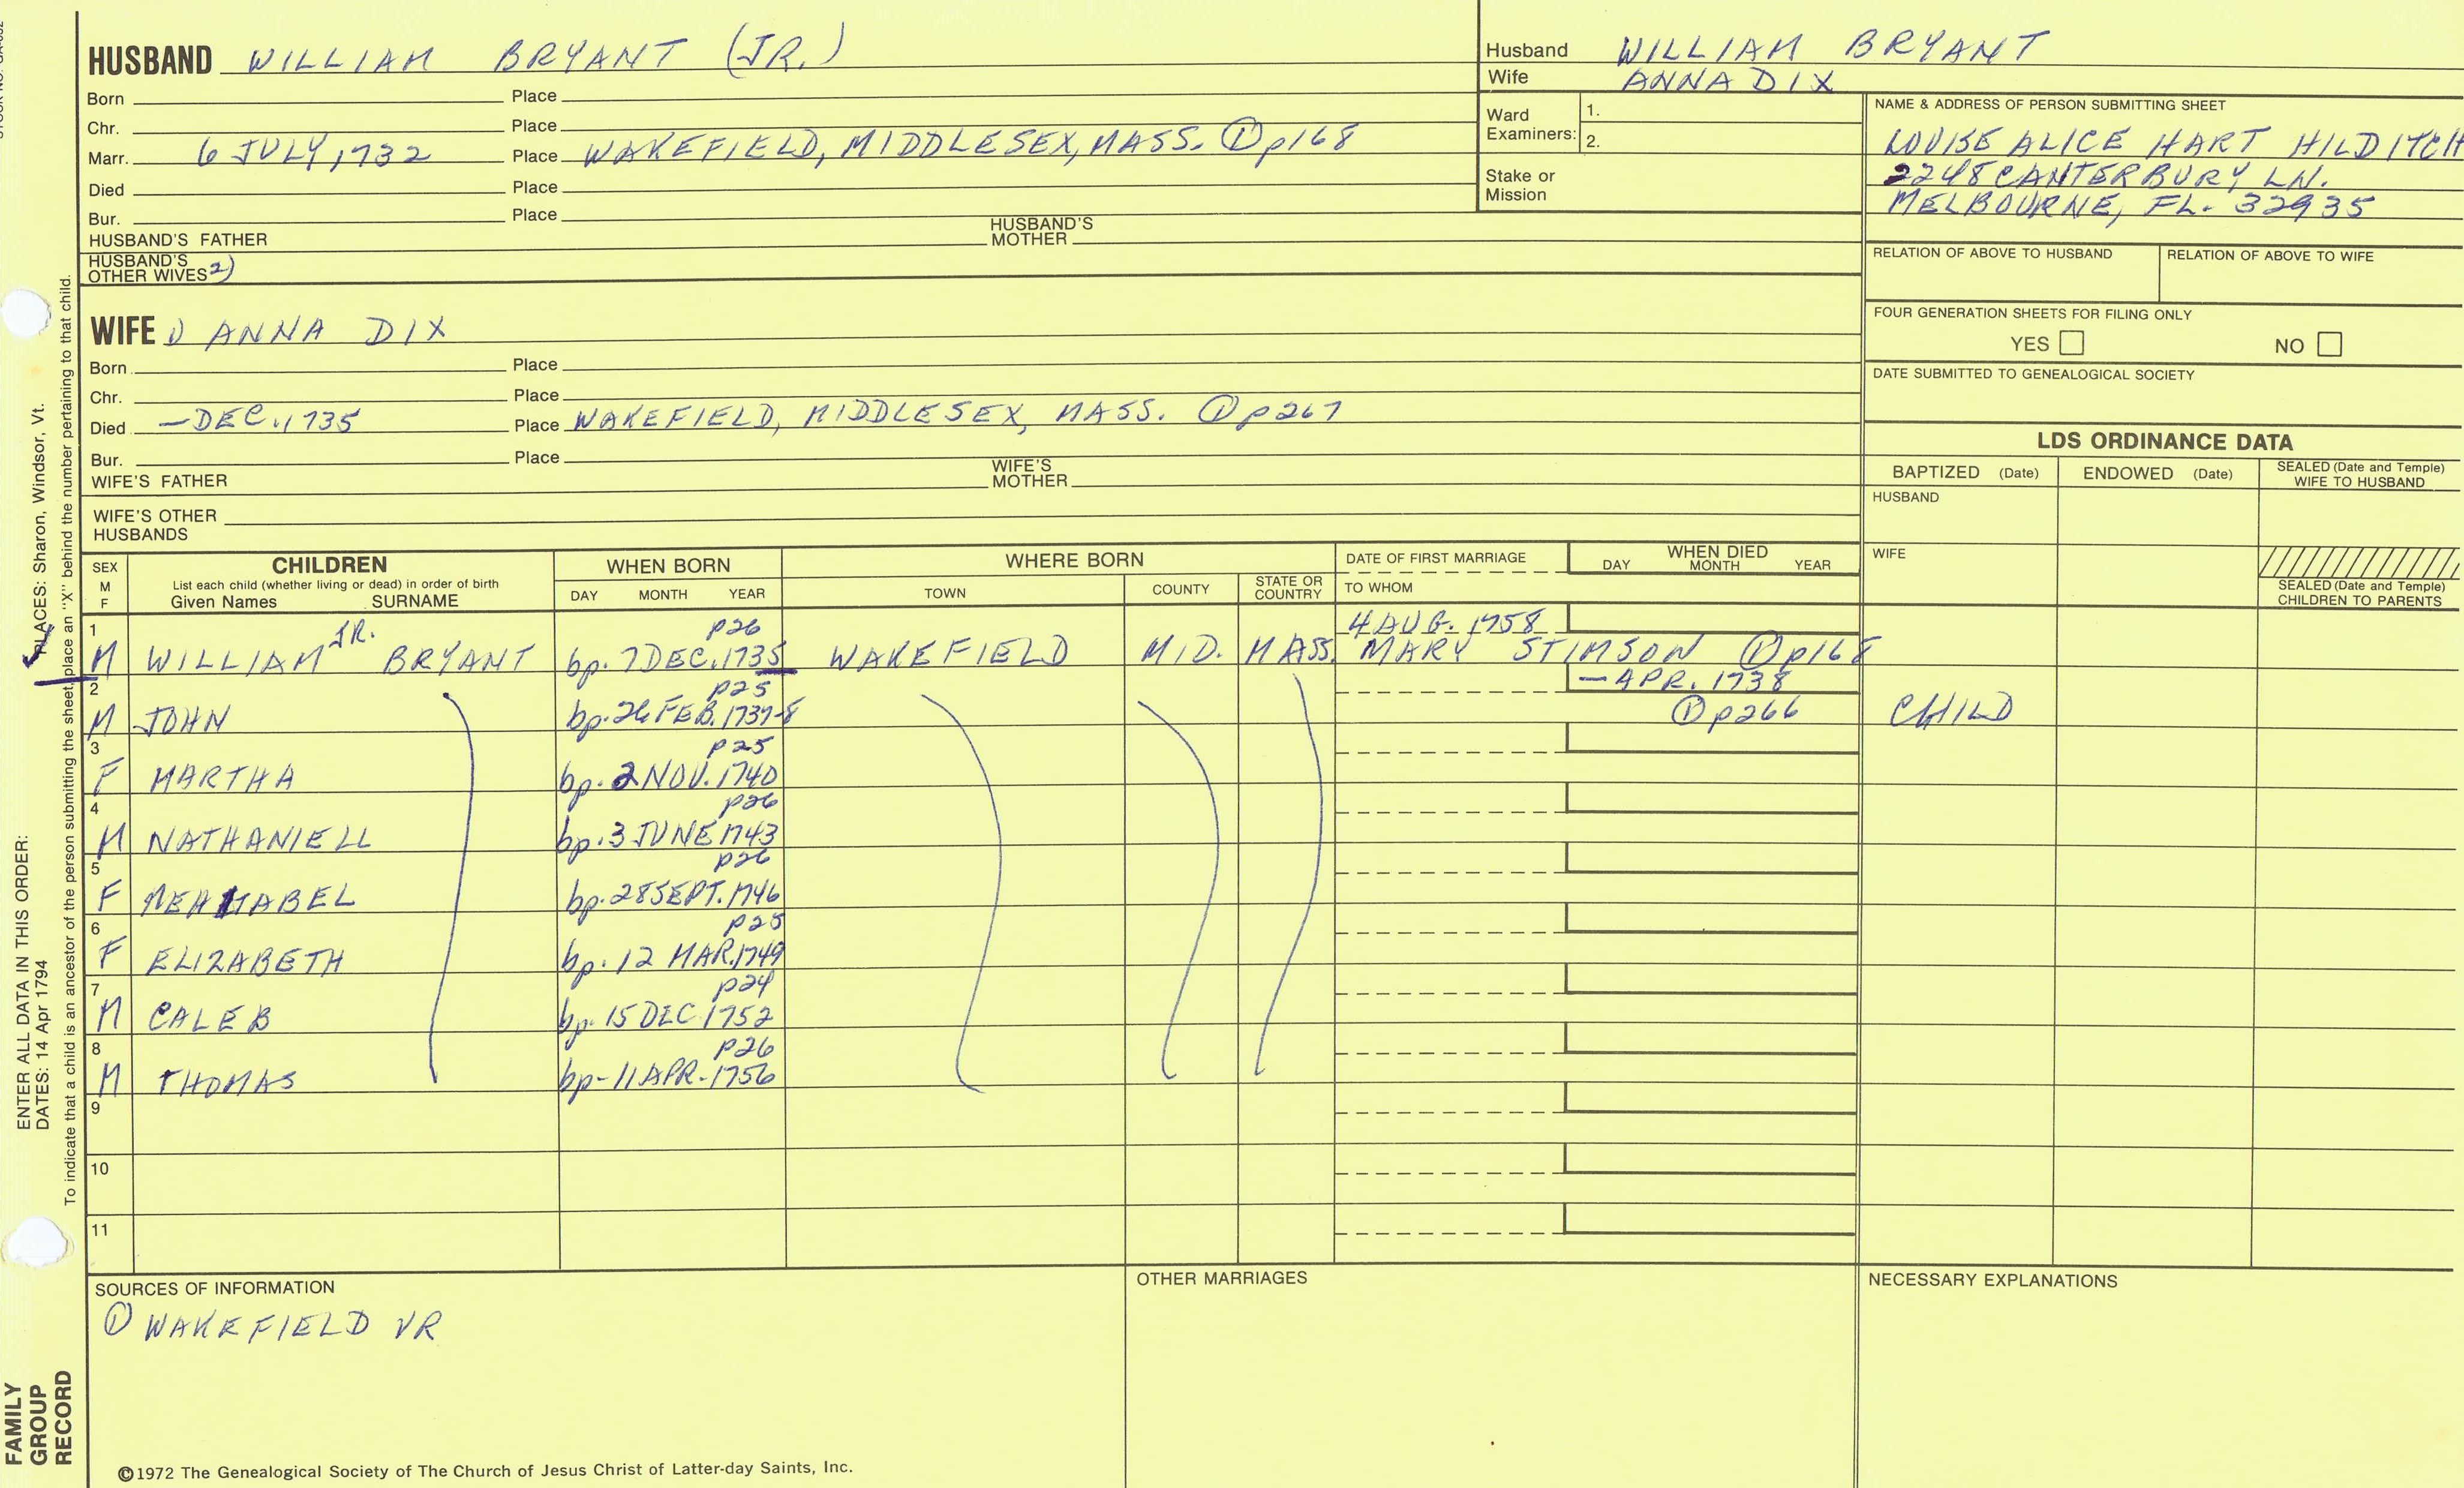 HUSBAND WILLIAM BRYANT (JR.)
Born Place
Chr. Place
Marr. 6 JULY, 1732 Place WAKEFIELD, MIDDLESEX, MASS. ① p168
Died Place
Bur. Place
HUSBAND'S FATHER HUSBAND'S MOTHER
HUSBAND'S OTHER WIVES 2)
WIFE 1) ANNA DIX
Born Place
Chr. Place
Died —DEC., 1735 Place WAKEFIELD, MIDDLESEX, MASS. ① p267
Bur. Place
WIFE'S FATHER WIFE'S MOTHER
WIFE'S OTHER HUSBANDS
Husband WILLIAM BRYANT
Wife ANNA DIX
Ward Examiners: 1.
2.
Stake or Mission
NAME & ADDRESS OF PERSON SUBMITTING SHEET
LOUISE ALICE HART HILDITCH
2248 CANTERBURY LN.
MELBOURNE, FL. 32935
RELATION OF ABOVE TO HUSBAND RELATION OF ABOVE TO WIFE
FOUR GENERATION SHEETS FOR FILING ONLY
YES NO
DATE SUBMITTED TO GENEALOGICAL SOCIETY
LDS ORDINANCE DATA
BAPTIZED (Date) ENDOWED (Date) SEALED (Date and Temple) WIFE TO HUSBAND
HUSBAND
WIFE
SEALED (Date and Temple) CHILDREN TO PARENTS
SEX M F
CHILDREN
List each child (whether living or dead) in order of birth
Given Names SURNAME
WHEN BORN
DAY MONTH YEAR
WHERE BORN
TOWN COUNTY STATE OR COUNTRY
DATE OF FIRST MARRIAGE
TO WHOM
WHEN DIED
DAY MONTH YEAR
1 p26 4 AUG. 1758
M WILLIAM JR. BRYANT bp. 7 DEC. 1735 WAKEFIELD MID. MASS. MARY STIMSON ① p168
2 p25 —APR. 1738
M JOHN bp. 26 FEB. 1737-8 ① p266 CHILD
3 p25
F MARTHA bp. 2 NOV. 1740
4 p26
M NATHANIELL bp. 3 JUNE 1743
5 p26
F MEHITABEL bp. 28 SEPT. 1746
6 p25
F ELIZABETH bp. 12 MAR. 1749
7 p24
M CALEB bp. 15 DEC 1752
8 p26
M THOMAS bp - 11 APR. 1756
9
10
11
SOURCES OF INFORMATION
① WAKEFIELD VR
OTHER MARRIAGES
NECESSARY EXPLANATIONS
©1972 The Genealogical Society of The Church of Jesus Christ of Latter-day Saints, Inc.
ENTER ALL DATA IN THIS ORDER:
DATES: 14 Apr 1794 PLACES: Sharon, Windsor, Vt.
To indicate that a child is an ancestor of the person submitting the sheet, place an "X" behind the number pertaining to that child.
FAMILY
GROUP
RECORD